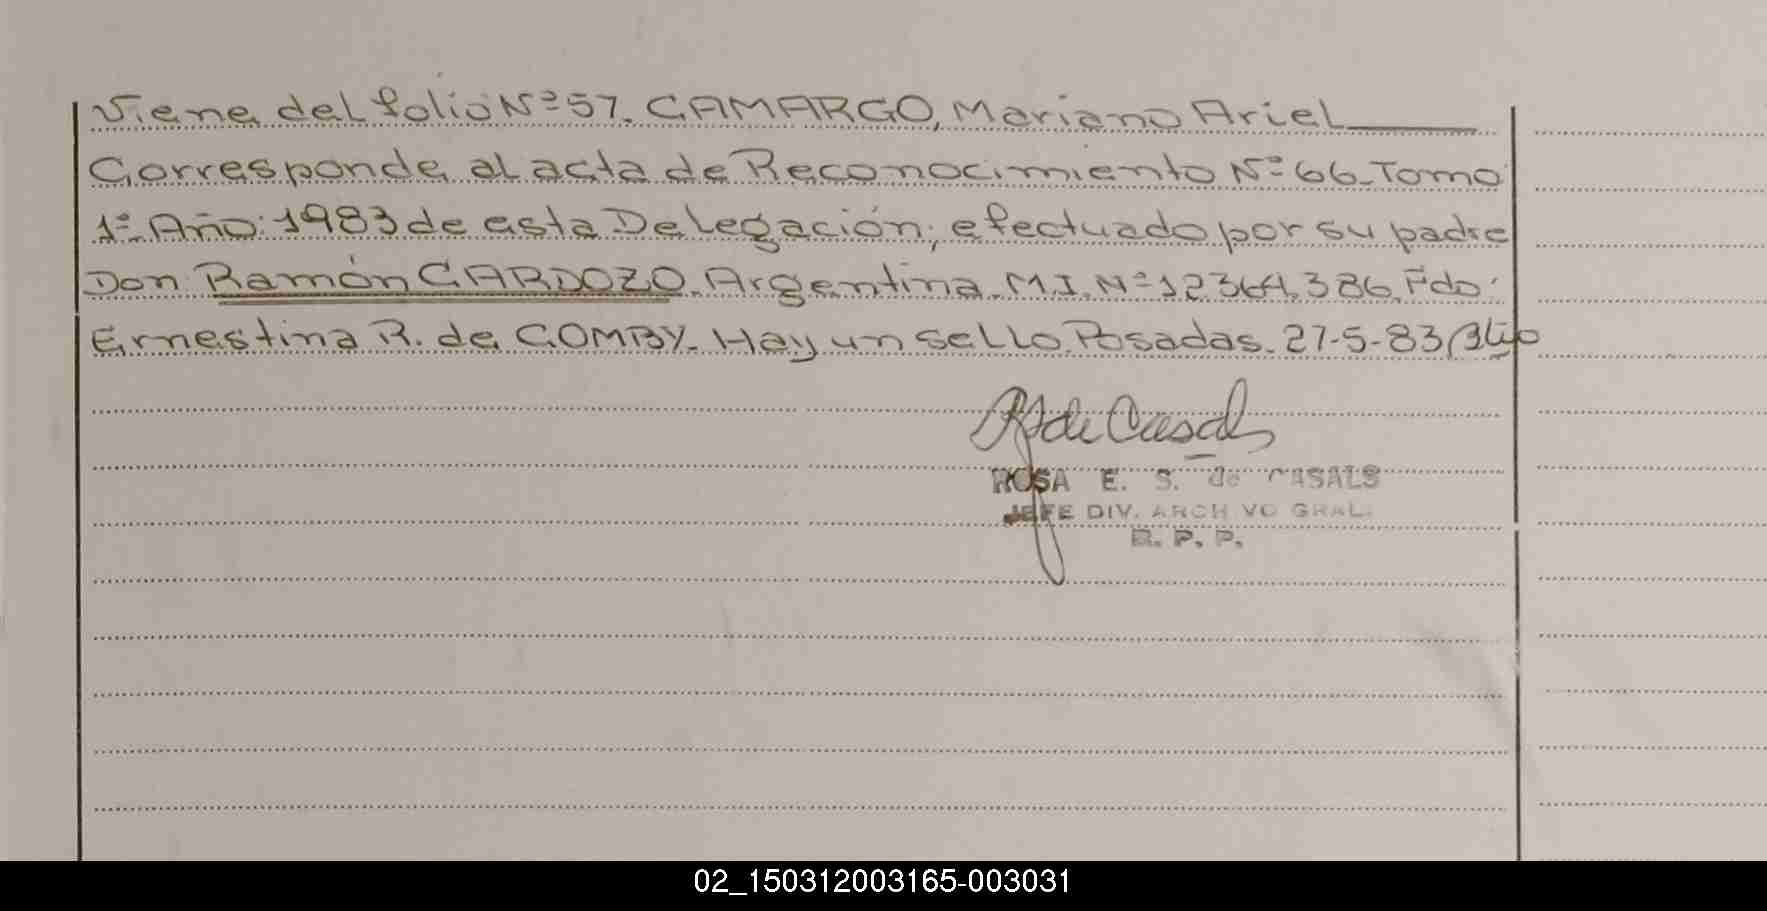 Viene del folio Nº 57. CAMARGO, Mariano Ariel
Corresponde al acta de Reconocimiento Nº 66 - Tomo
1º - Año: 1983 de esta Delegación, efectuado por su padre
Don Ramón CARDOZO. Argentina. M.I. Nº 12.364.386. Fdo:
Ernestina R. de COMBY - Hay un sello. Posadas. 27-5-83
R S de Casals
ROSA E. S. de CASALS
JEFE DIV. ARCHIVO GRAL.
R. P. P.
02_150312003165-003031